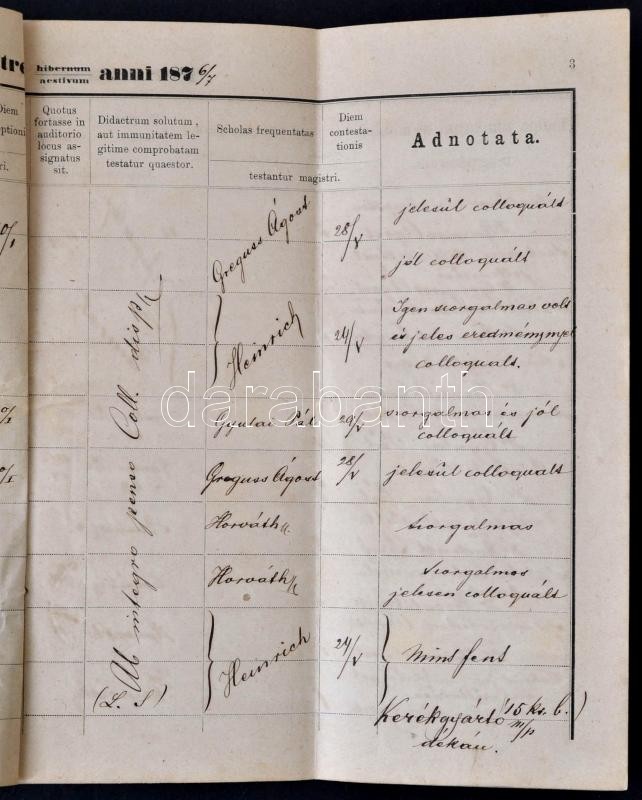 3
hibernum
aestivum anni 187 6/7
Quotus
fortasse in
auditorio
locus as-
signatus
sit.
Didactrum solutum,
aut immunitatem le-
gitime comprobatam
testatur quaestor.
Scholas frequentatas
Diem
contesta-
tionis
testantur magistri.
Adnotata.
Ab integro penso Coll. disp.
(L. S)
Greguss Ágost 28/V jelesül colloquált
jól colloquált
Heinrich 24/V Igen szorgalmas volt
és jeles eredménynyel
colloquált.
Gyulai Pál 29/V szorgalmas és jól
colloquált
Greguss Ágost 28/V jelesül colloquált
Horváth szorgalmas
Horváth szorgalmas
jelesen colloquált
Heinrich 24/V Mint fent
Kerékgyártó
m/p
dékán.
darabanth